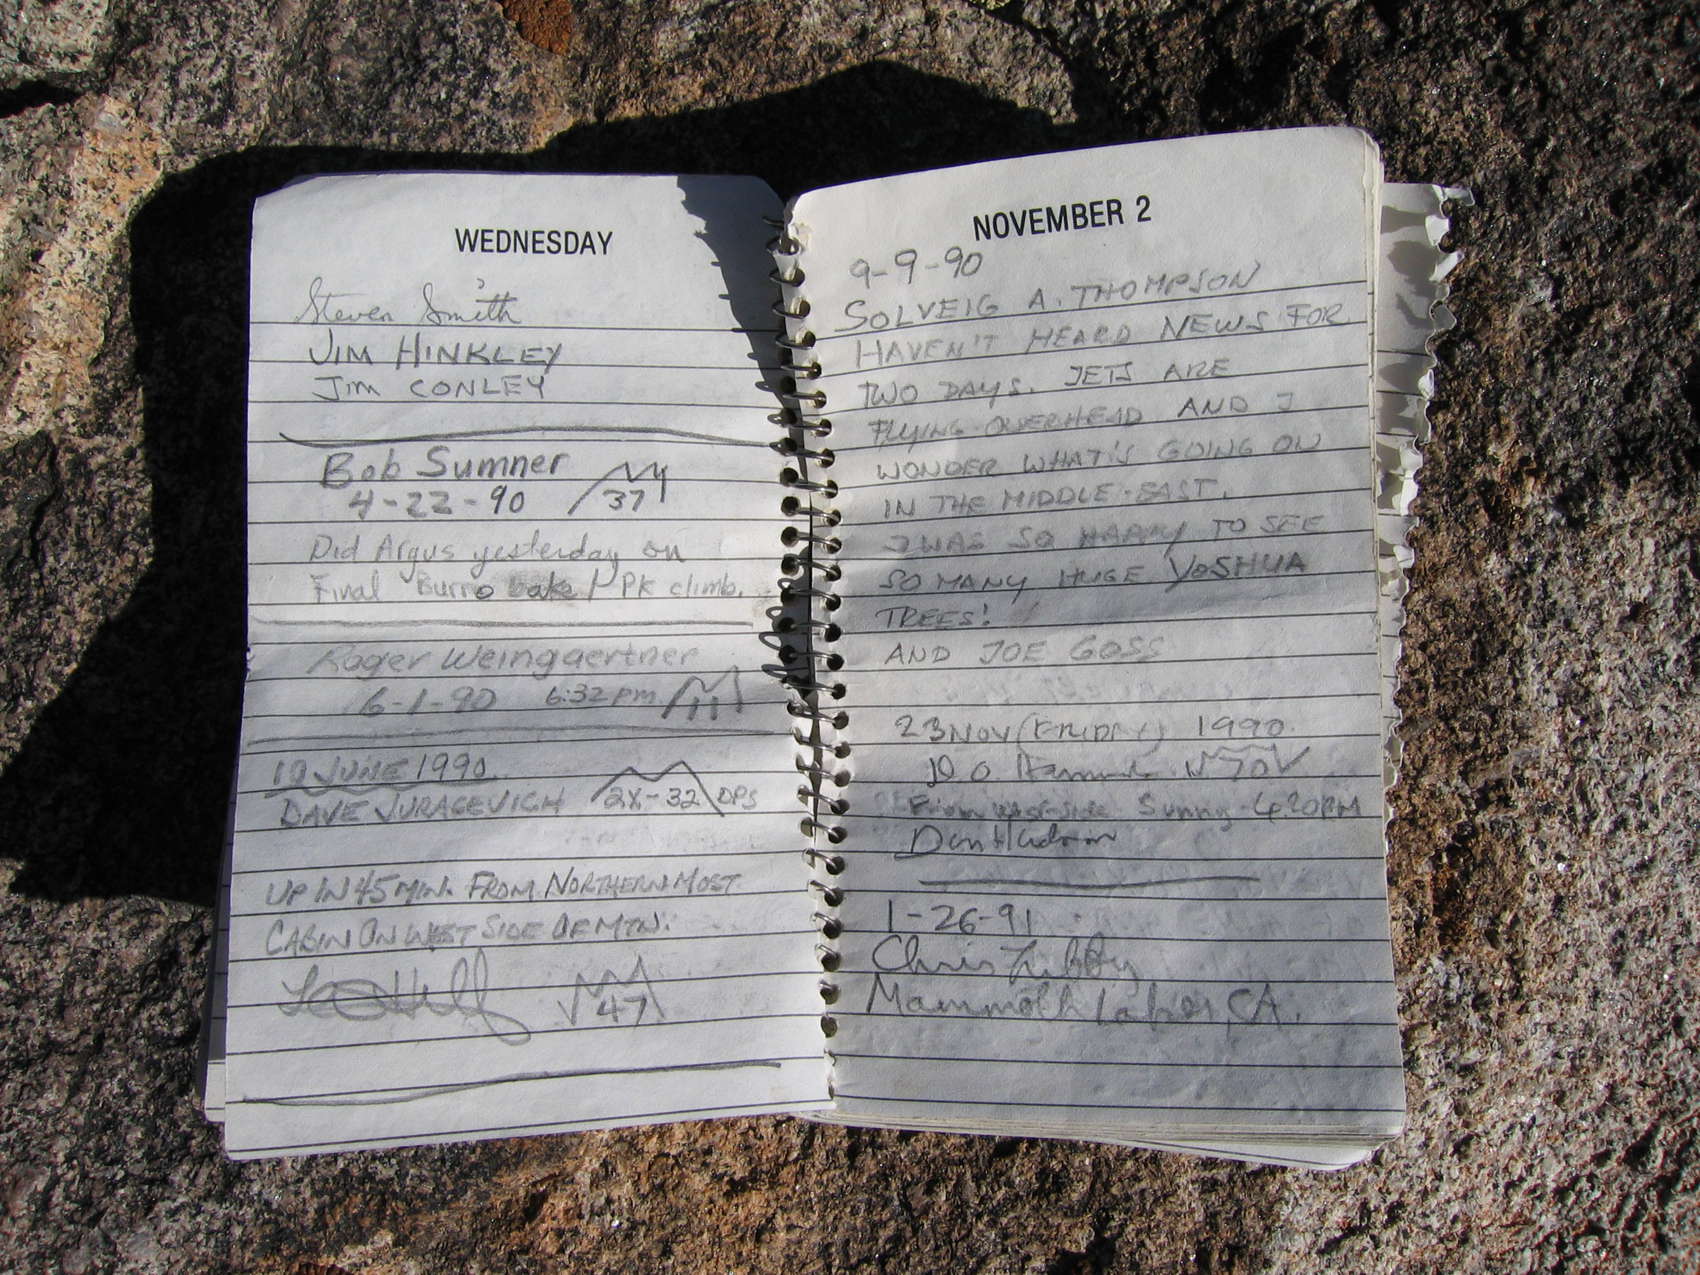 WEDNESDAY
Steven Smith
JIM HINKLEY
Jim CONLEY
Bob Sumner
4-22-90 37
Did Argus yesterday on
Final Burro bake / Pk climb.
Roger Weingaertner
6-1-90 6:32 pm 11
12 JUNE 1990
DAVE JURASEVICH 2X-32 DPS
UP IN 45 MIN. FROM NORTHERNMOST
CABIN ON WEST SIDE OF MTN.
47
NOVEMBER 2
9-9-90
SOLVEIG A. THOMPSON
HAVEN'T HEARD NEWS FOR
TWO DAYS. JETS ARE
FLYING OVERHEAD AND I
WONDER WHAT'S GOING ON
IN THE MIDDLE-EAST.
I WAS SO HAPPY TO SEE
SO MANY HUGE YOSHUA
TREES!
AND JOE GOSS
23 NOV (FRIDAY) 1990
70
From west side Sunny 4:20PM
1-26-91
Chris Libby
Mammoth Lakes, CA.